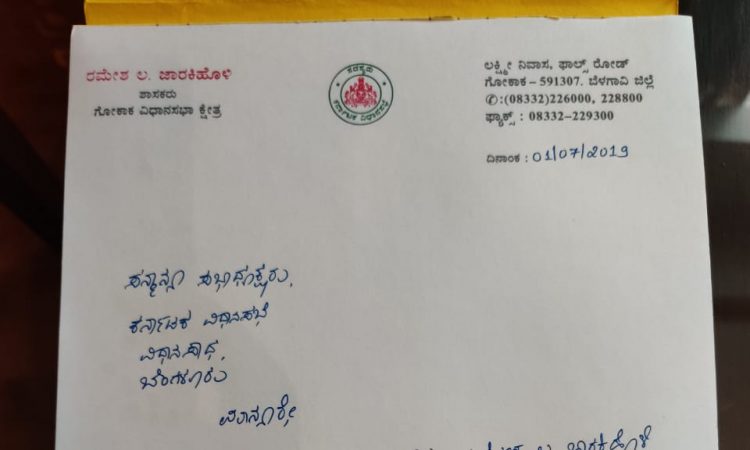 ರಮೇಶ ಲ. ಜಾರಕಿಹೊಳಿ
ಶಾಸಕರು
ಗೋಕಾಕ ವಿಧಾನಸಭಾ ಕ್ಷೇತ್ರ
ಸದಸ್ಯರು
ಕರ್ನಾಟಕ ವಿಧಾನಸಭೆ
ಲಕ್ಷ್ಮೀ ನಿವಾಸ, ಫಾಲ್ಸ್ ರೋಡ್
ಗೋಕಾಕ - 591307. ಬೆಳಗಾವಿ ಜಿಲ್ಲೆ
✆:(08332)226000, 228800
ಫ್ಯಾಕ್ಸ್ : 08332-229300
ದಿನಾಂಕ : 01/07/2019
ಸನ್ಮಾನ್ಯ ಸಭಾಧ್ಯಕ್ಷರು,
ಕರ್ನಾಟಕ ವಿಧಾನಸಭೆ
ವಿಧಾನಸೌಧ,
ಬೆಂಗಳೂರು
ಮಾನ್ಯರೇ,
ಲ ಜಾರಕಿಹೊಳಿ